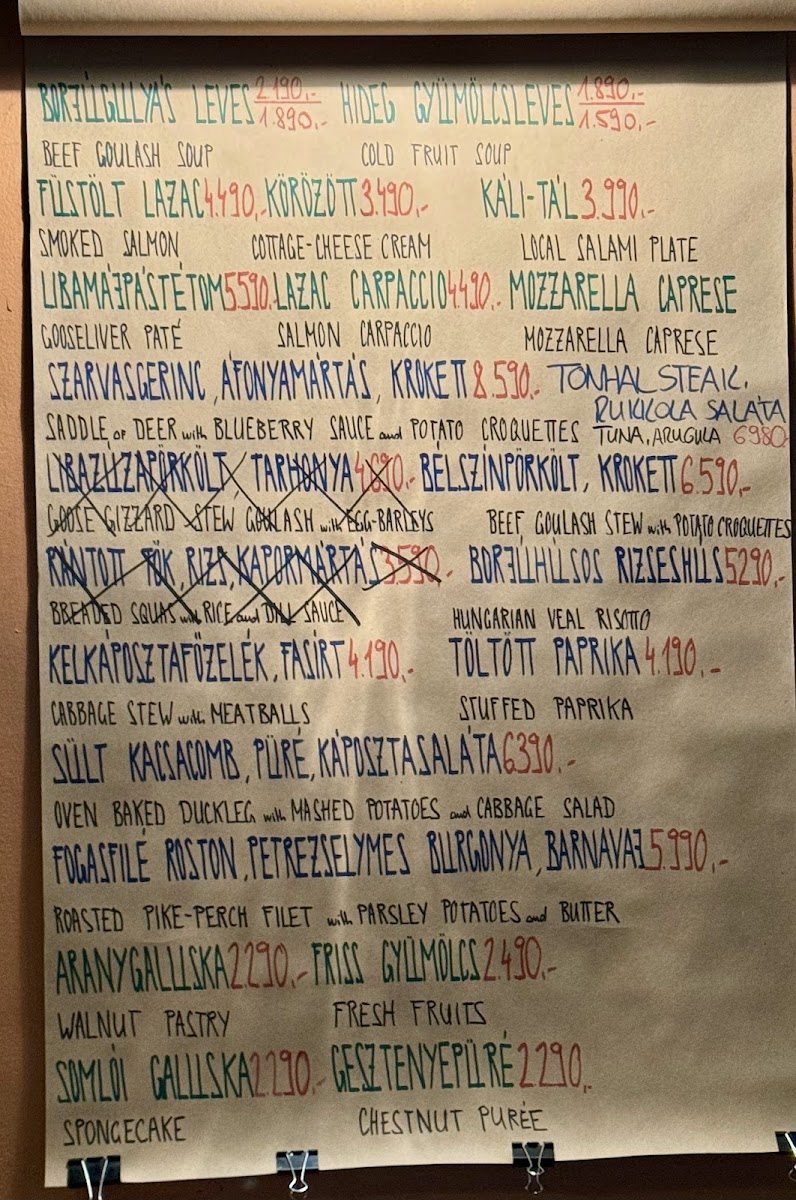 BORJÚGULYÁS LEVES 2.190,- 1.890,- HIDEG GYÜMÖLCSLEVES 1.890,- 1.590,-
BEEF GOULASH SOUP COLD FRUIT SOUP
FÜSTÖLT LAZAC 4.490,- KÖRÖZÖTT 3.490,- KÁLI-TÁL 3.990,-
SMOKED SALMON COTTAGE-CHEESE CREAM LOCAL SALAMI PLATE
LIBAMÁJPÁSTÉTOM 5590,- LAZAC CARPACCIO 4490,- MOZZARELLA CAPRESE
GOOSELIVER PATÉ SALMON CARPACCIO MOZZARELLA CAPRESE
SZARVASGERINC, ÁFONYAMÁRTÁS, KROKETT 8.590,- TONHAL STEAK,
RUKKOLA SALÁTA
SADDLE of DEER with BLUEBERRY SAUCE and POTATO CROQUETTES TUNA, ARUGULA 6980,-
LIBAZÚZAPÖRKÖLT, TARHONYA 4.690,- BÉLSZÍNPÖRKÖLT, KROKETT 6.590,-
GOOSE GIZZARD STEW GOULASH with EGG-BARLEYS BEEF GOULASH STEW with POTATO CROQUETTES
RÁNTOTT TÖK, RIZS, KAPORMÁRTÁS 3.590,- BORJÚHÚSOS RIZSESHÚS 5290,-
BREADED SQUAS with RICE and DILL SAUCE HUNGARIAN VEAL RISOTTO
KELKÁPOSZTAFŐZELÉK, FASÍRT 4.190,- TÖLTÖTT PAPRIKA 4.190,-
CABBAGE STEW with MEATBALLS STUFFED PAPRIKA
SÜLT KACSACOMB, PÜRÉ, KÁPOSZTASALÁTA 6390,-
OVEN BAKED DUCKLEG with MASHED POTATOES and CABBAGE SALAD
FOGASFILÉ ROSTON, PETREZSELYMES BURGONYA, BARNAVAJ 5.990,-
ROASTED PIKE-PERCH FILET with PARSLEY POTATOES and BUTTER
ARANYGALUSKA 2290,- FRISS GYÜMÖLCS 2.490,-
WALNUT PASTRY FRESH FRUITS
SOMLÓI GALUSKA 2290,- GESZTENYEPÜRÉ 2290,-
SPONGECAKE CHESTNUT PURÉE